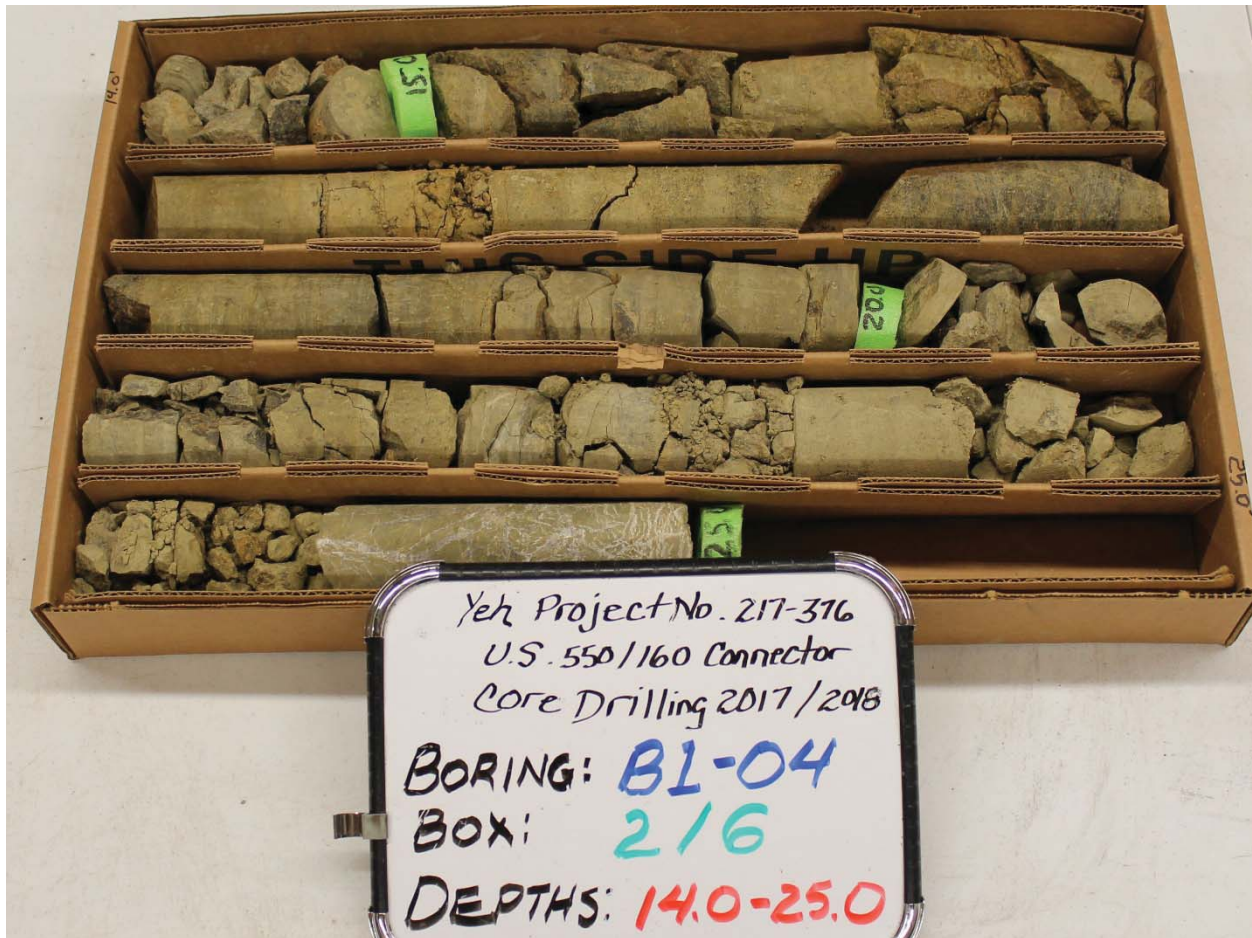 14.0'
15.0
THIS SIDE UP
20.0
25.0
25.0
Yeh Project No. 217-376
U.S. 550/160 Connector
Core Drilling 2017/2018
BORING: B1-04
BOX: 2/6
DEPTHS: 14.0-25.0